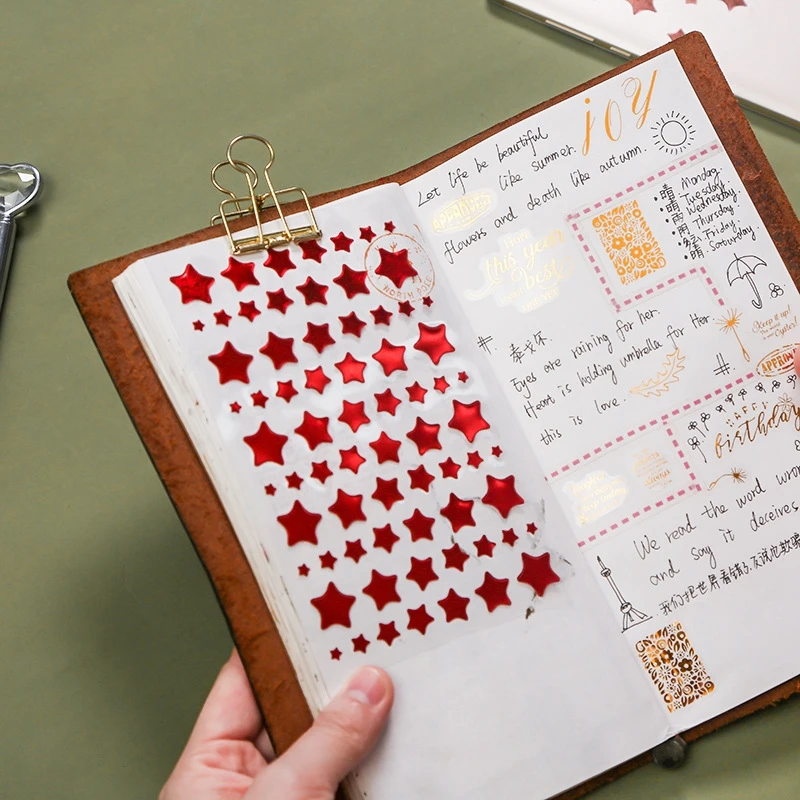 NORTH POLE
joy
Let life be beautiful
like summer
flowers and death like autumn.
APPROVED
this year
best
Monday.
Tuesday.
Wednesday.
雨 Thursday.
Friday.
晴 Saturday.
#. 泰戈尔
Eyes are raining for her.
Heart is holding umbrella for Her
this is love.
#.
Keep it up!
APPROVED
HAPPY
birthday
always
We read the word wrong
and say it deceives
我们把世界看错了,反说它欺骗